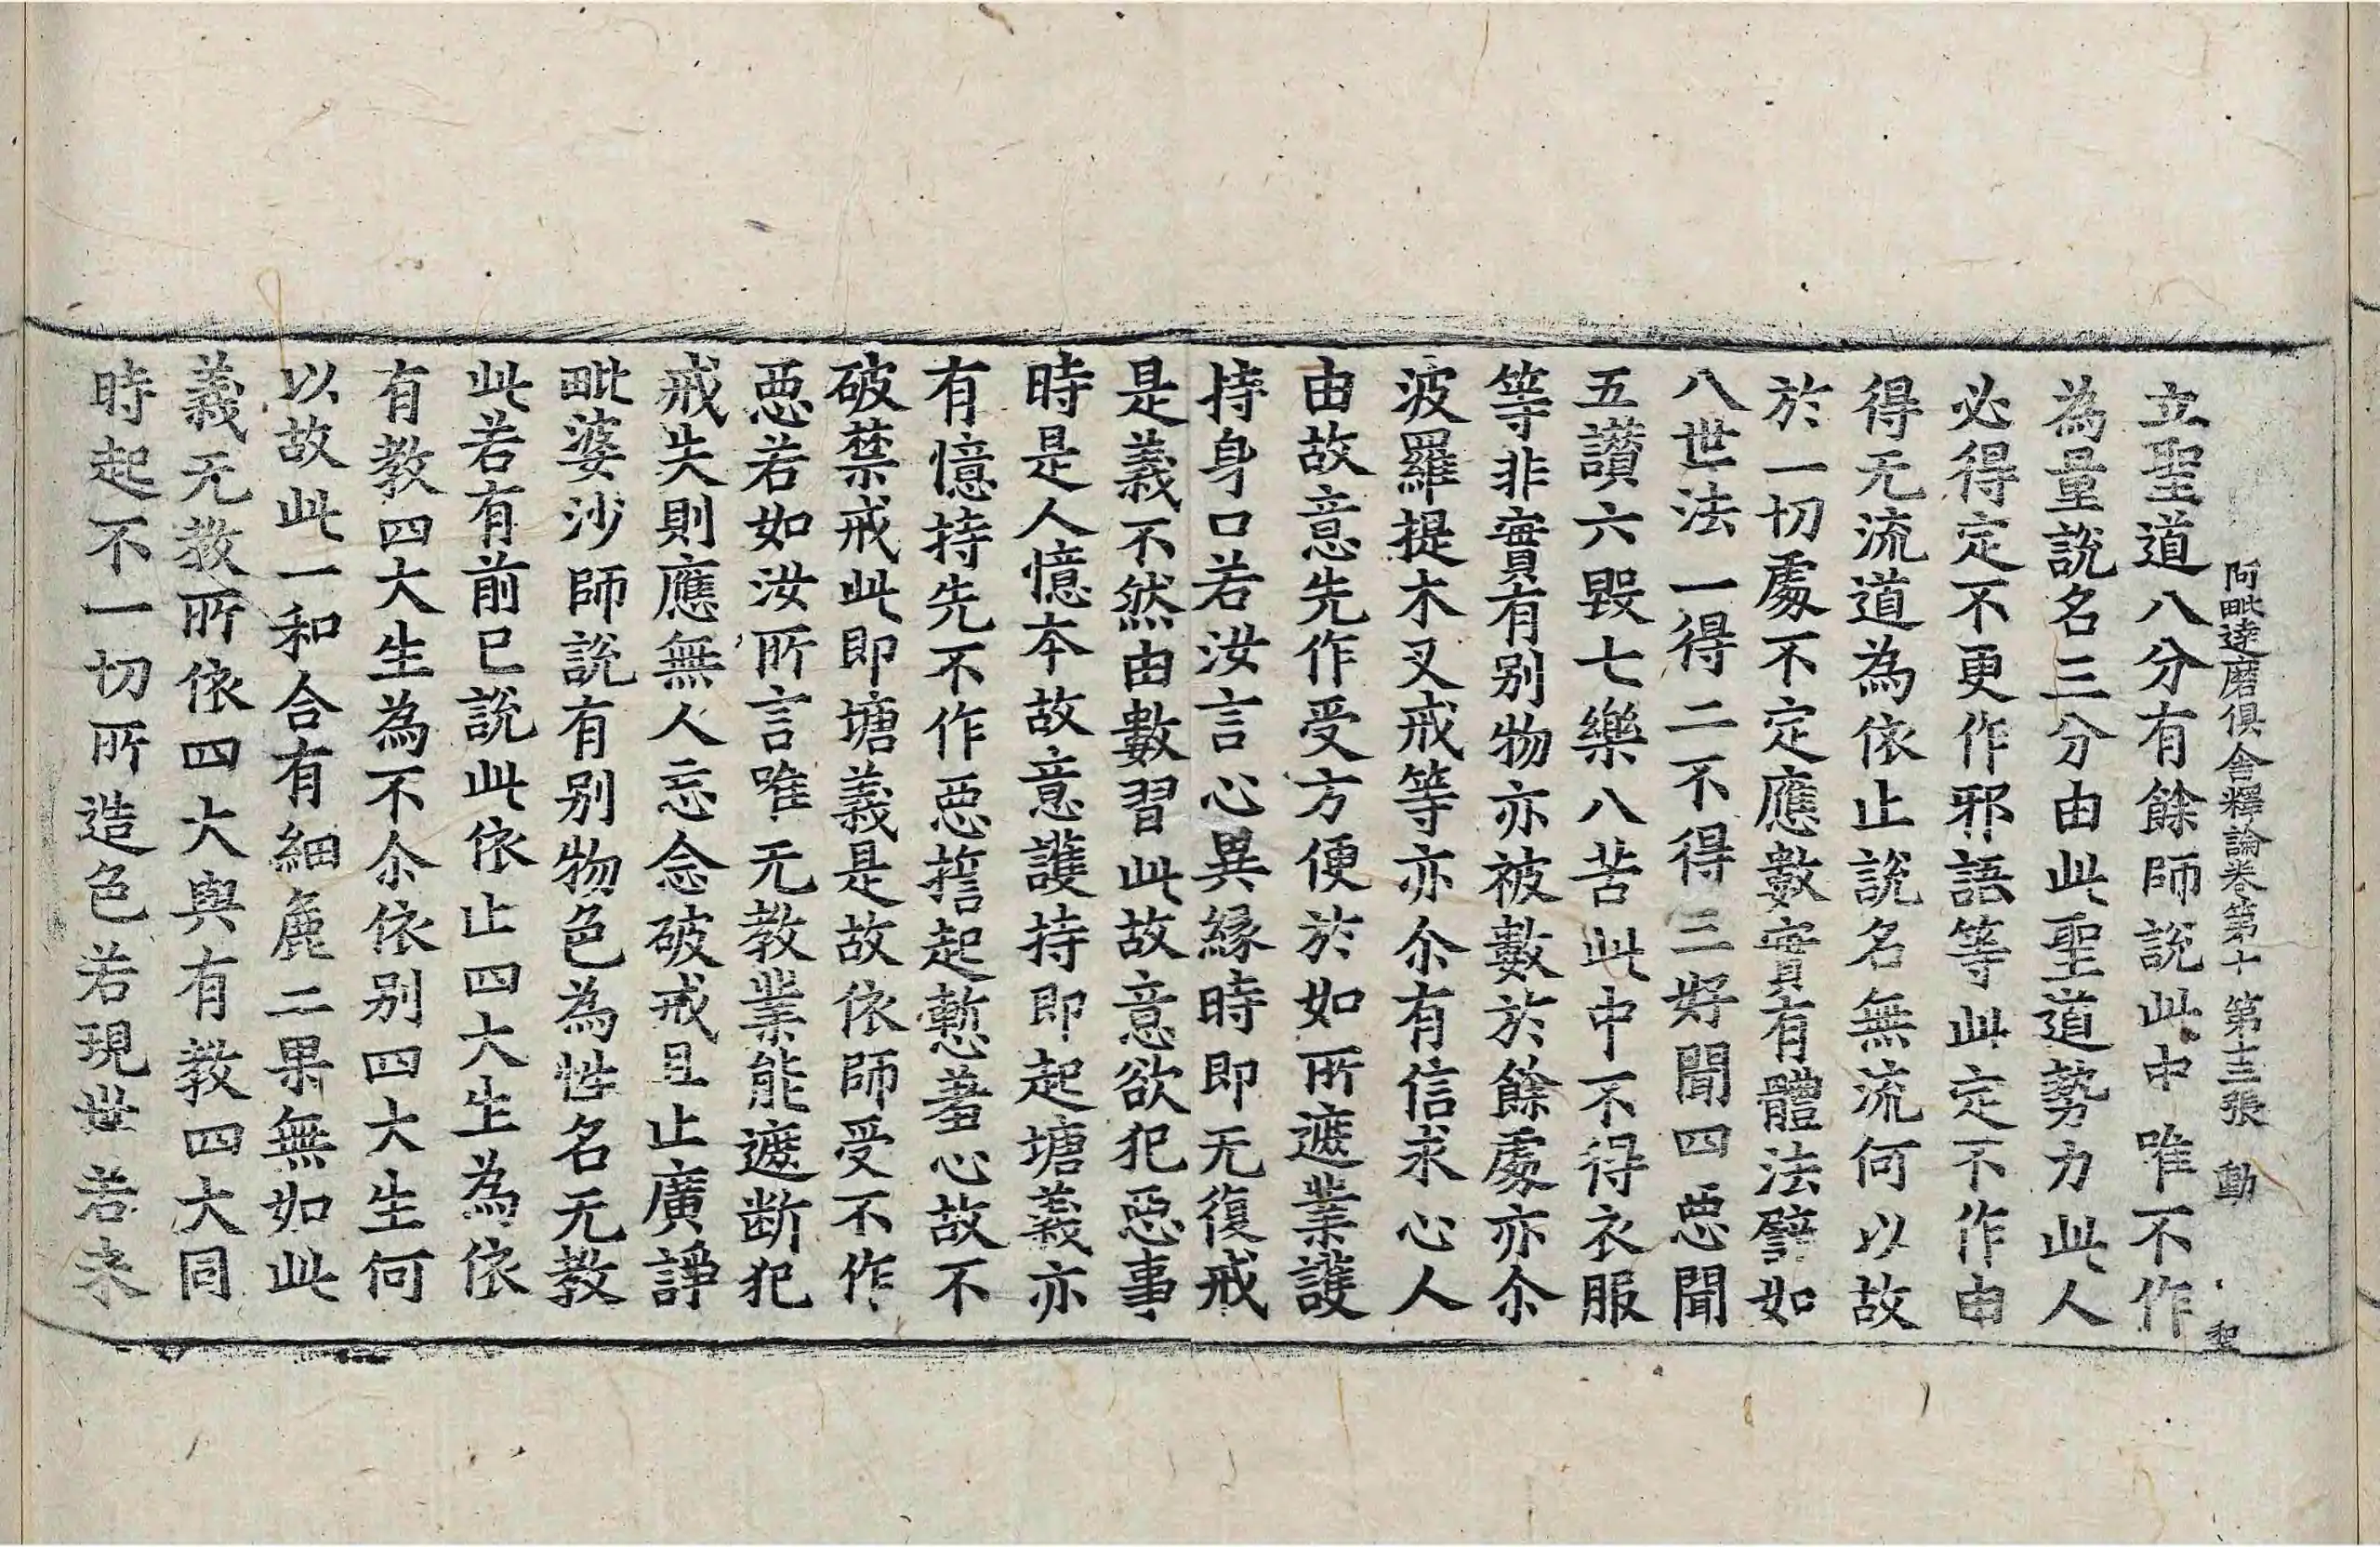 阿毗達磨俱舍釋論卷第十 第十三張 動
立聖道八分有餘師說此中唯不作
為量說名三分由此聖道勢力此人
必得定不更作邪語等此定不作由
得无流道為依止說名無流何以故
於一切處不定應數實有體法譬如
八世法一得二不得三好聞四惡聞
五讚六毀七樂八苦此中不得衣服
等非實有別物亦被數於餘處亦尒
波羅提木叉戒等亦尒有信求心人
由故意先作受方便於如所遮業護
持身口若汝言心異緣時即无復戒
是義不然由數習此故意欲犯惡事
時是人憶本故意護持即起塘義亦
有憶持先不作惡誓起慙羞心故不
破禁戒此即塘義是故依師受不作
惡若如汝所言唯无教業能遮断犯
戒失則應無人忘念破戒且止廣諍
毗婆沙師說有別物色為性名无教
此若有前已說此依止四大生為依
有教四大生為不尒依別四大生何
以故此一和合有細麁二果無如此
義无教所依四大與有教四大同
時起不一切所造色若現世若未